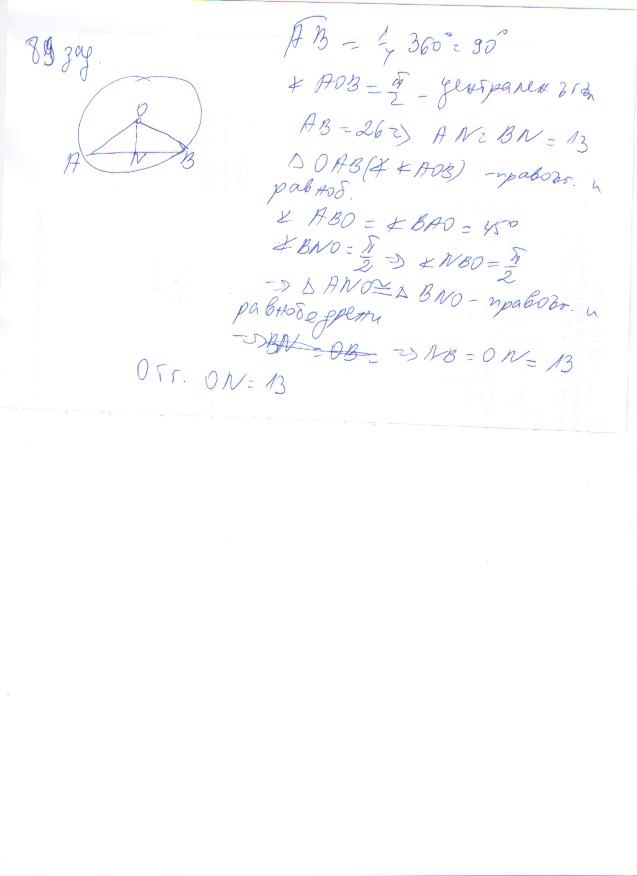 89 зад.
A͡B = 1/4 360° = 90°
∢ AOB = π/2 - централен ъгъл
AB = 26 => AN = BN = 13
△ OAB (∢ ∢ AOB) - правоъг. и
равноб.
∢ ABO = ∢ BAO = 45°
∢ BNO = π/2 => ∢ NBO = π/2
=> △ ANO ≅ △ BNO - правоъг. и
равнобедрени
=> BN = OB = => NB = ON = 13
Отг. ON = 13
O
A N B